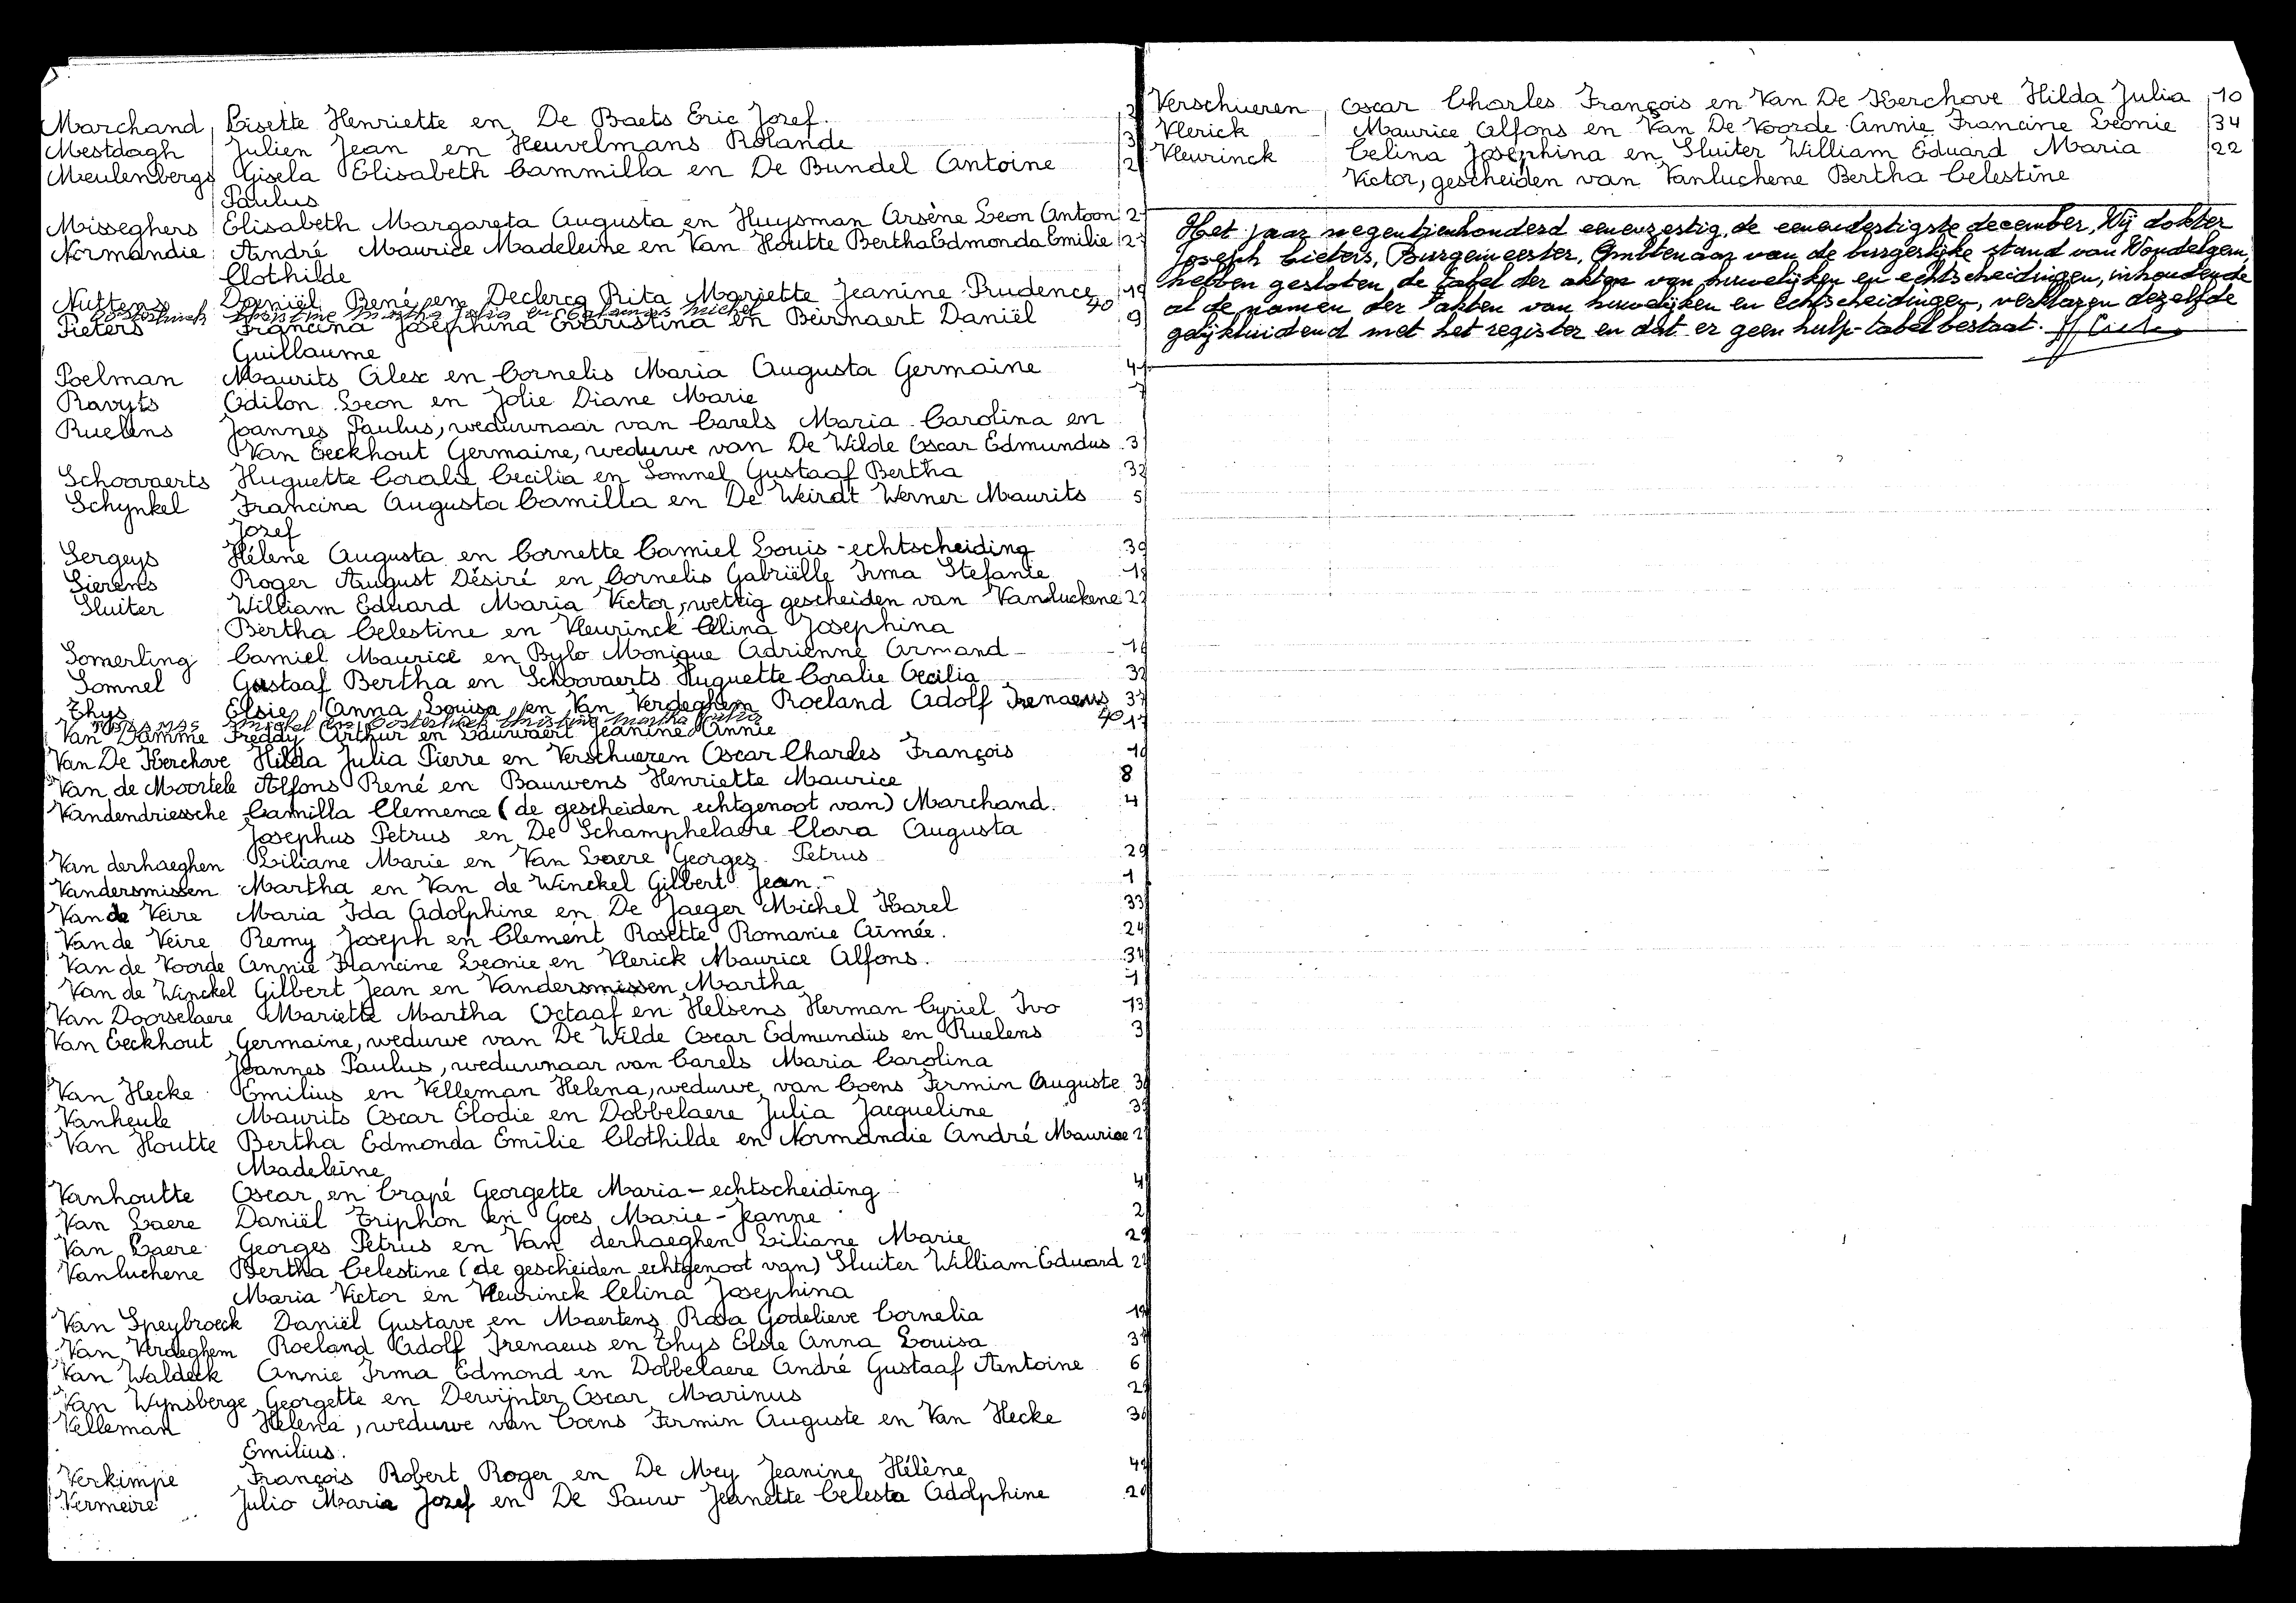 Marchand Lisette Henriette en De Baets Eric Jozef.
Mestdagh Julien Jean en Heuvelmans Rolande 3
Meulenbergs Gisela Elisabeth Cammilla en De Bundel Antoine 2
Paulus
Misseghers Elisabeth Margareta Augusta en Huysman Arsène Leon Antoon 2
Normandie André Maurice Madeleine en Van Houtte Bertha Edmonda Emilie 2
Clothilde
Nuttens Daniël René en Declercq Rita Mariette Jeanine Prudence 19
Oosterlinck Christine Martha Julia en Michel 40
Pieters Francina Josephina Evaristina en Beirnaert Daniël 9
Guillaume
Poelman Maurits Alex en Cornelis Maria Augusta Germaine 41
Ravyts Odilon Leon en Jolie Diane Marie 7
Ruelens Joannes Paulus, weduwnaar van Carels Maria Carolina en
Van Eeckhout Germaine, weduwe van De Wilde Oscar Edmundus 3
Schoovaerts Huguette Coralie Cecilia en Somnel Gustaaf Bertha 32
Schynkel Francina Augusta Camilla en De Weirdt Werner Maurits 5
Jozef
Sergeys Hélène Augusta en Cornette Camiel Louis - echtscheiding 39
Sierens Roger August Désiré en Cornelis Gabriëlle Irma Stefanie 18
Sluiter William Eduard Maria Victor, wettig gescheiden van Vanluchene 22
Bertha Celestine en Vleurinck Celina Josephina
Somerling Camiel Maurice en Bylo Monique Adrienne Armand - 16
Somnel Gustaaf Bertha en Schoovaerts Huguette Coralie Cecilia 32
Thys Elsie Anna Louisa en Van Verdeghem Roeland Adolf Irenaeus 37
Michel en Oosterlinck Christine Martha Julia 40
Van Damme Freddy Arthur en Lauwaert Jeanine Annie 17
Van De Kerchove Hilda Julia Pierre en Verschueren Oscar Charles François 10
Van de Moortele Alfons René en Bauwens Henriette Maurice 8
Vandendriessche Camilla Clemence (de gescheiden echtgenoot van) Marchand. 4
Josephus Petrus en De Schamphelaere Clara Augusta
Van derhaeghen Liliane Marie en Van Laere Georges Petrus 29
Vandersmissen Martha en Van de Winckel Gilbert Jean.- 1
Van de Veire Maria Ida Adolphine en De Jaeger Michel Karel 33
Van de Veire Remy Joseph en Clement Rosette Romanie Aimée. 24
Van de Voorde Annie Francine Leonie en Vlerick Maurice Alfons. 34
Van de Winckel Gilbert Jean en Vandersmissen Martha 1
Van Doorselaere Mariette Martha Octaaf en Helsens Herman Cyriel Ivo 13
Van Eeckhout Germaine, weduwe van De Wilde Oscar Edmundus en Ruelens 3
Joannes Paulus, weduwnaar van Carels Maria Carolina
Van Hecke Emilius en Velleman Helena, weduwe van Coens Firmin Auguste 3
Vanheule Maurits Oscar Elodie en Dobbelaere Julia Jacqueline 3
Van Houtte Bertha Edmonda Emilie Clothilde en Normandie André Maurice 2
Madeleine
Vanhoutte Oscar en Crapé Georgette Maria - echtscheiding 4
Van Laere Daniël Triphon en Goes Marie-Jeanne 2
Van Laere Georges Petrus en Van derhaeghen Liliane Marie 29
Vanluchene Bertha Celestine (de gescheiden echtgenoot van) Sluiter William Eduard 22
Maria Victor en Vleurinck Celina Josephina
Van Speybroeck Daniël Gustave en Maertens Rosa Godelieve Cornelia 14
Van Verdeghem Roeland Adolf Irenaeus en Thys Elsie Anna Louisa 37
Van Waldeck Annie Irma Edmond en Dobbelaere André Gustaaf Antoine 6
Van Wynsberge Georgette en Dervijnter Oscar Marinus 2
Velleman Helena, weduwe van Coens Firmin Auguste en Van Hecke 3
Emilius.
Verkimpe François Robert Roger en De Mey Jeanine Hélène 4
Vermeire Julio Maria Jozef en De Pauw Jeanette Celesta Adolphine 20
Verschueren Oscar Charles François en Van De Kerchove Hilda Julia 10
Vlerick Maurice Alfons en Van De Voorde Annie Francine Leonie 34
Vleurinck Celina Josephina en Sluiter William Eduard Maria 22
Victor, gescheiden van Vanluchene Bertha Celestine
Het jaar negentienhonderd eenenzestig, de eenendertigste december, Wij dokter
Joseph Cieters, Burgemeester, Ambtenaar van de burgerlijke stand van Wondelgem,
hebben gesloten de tabel der akten van huwelijken en echtscheidingen, inhoudende
al de namen der akten van huwelijken en echtscheidingen, verklaren dezelfde
gelijkluidend met het register en dat er geen hulp-tabel bestaat.